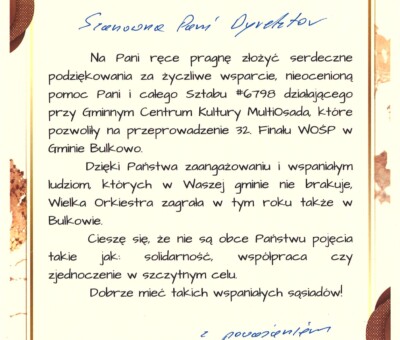 Szanowna Pani Dyrektor
Na Pani ręce pragnę złożyć serdeczne
podziękowania za życzliwe wsparcie, nieocenioną
pomoc Pani i całego Sztabu #6798 działającego
przy Gminnym Centrum Kultury MultiOsada, które
pozwoliły na przeprowadzenie 32. Finału WOŚP w
Gminie Bulkowo.
Dzięki Państwa zaangażowaniu i wspaniałym
ludziom, których w Waszej gminie nie brakuje,
Wielka Orkiestra zagrała w tym roku także w
Bulkowie.
Cieszę się, że nie są obce Państwu pojęcia
takie jak: solidarność, współpraca czy
zjednoczenie w szczytnym celu.
Dobrze mieć takich wspaniałych sąsiadów!
z poważaniem